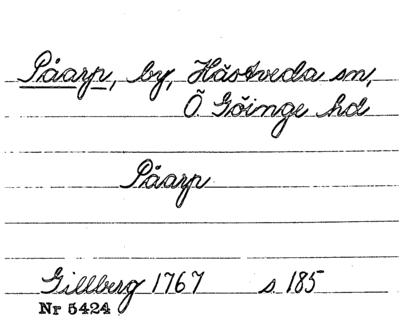 Påarp, by, Hästveda sn,
Ö Göinge hd
Påarp
Gillberg 1767 s 185
Nr 5424